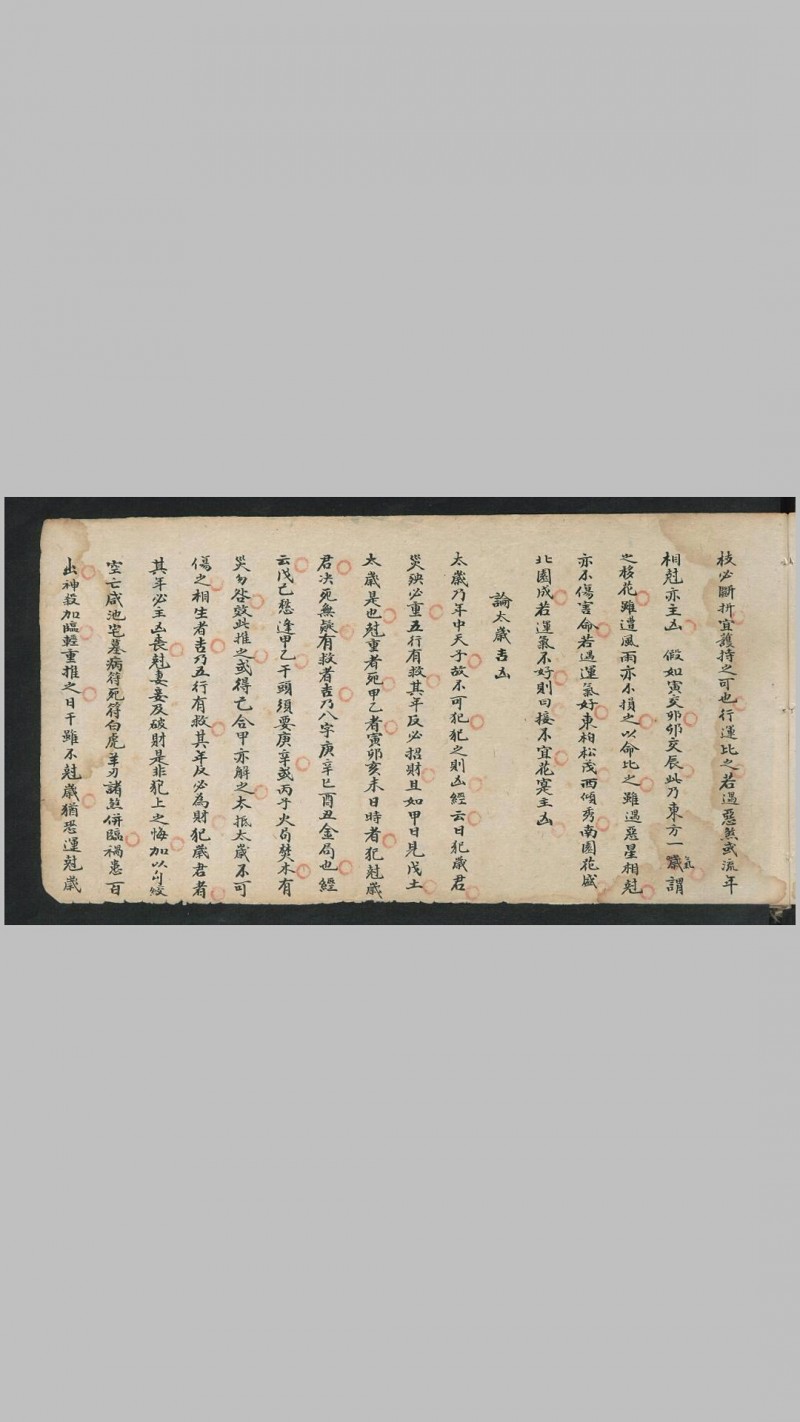 枝必斷折宜護持之可也行運比之若遇惡煞或流年
相尅亦主凶 假如寅交卯卯交辰此乃東方一氣謂
之移花雖遭風雨亦不損之以命比之雖遇惡星相尅
亦不傷害命若遇運氣好東栢松茂西傾秀南園花盛
北園成若運氣不好則曰接不宜花寔主凶
論太歲吉凶
太歲乃年中天子故不可犯犯之則凶經云日犯歲君
災殃必重五行有救其年反必招財且如甲日見戊土
太歲是也尅重者死甲乙者寅卯亥未日時者犯尅歲
君决死無疑有救者吉乃八字庚辛巳酉丑金局也經
云戊己愁逢甲乙干頭須要庚辛或丙子火局焚木有
災勿咎效此推之或得己合甲亦解之大抵太歲不可
傷之相生者吉乃五行有救其年反必為財犯歲君者
其年必主凶喪尅妻妾及破財是非犯上之悔加以勾絞
空亡咸池宅墓病符死符白虎羊刃諸煞併臨禍患百
出神殺加臨輕重推之日干雖不尅歲猶恐運尅歲